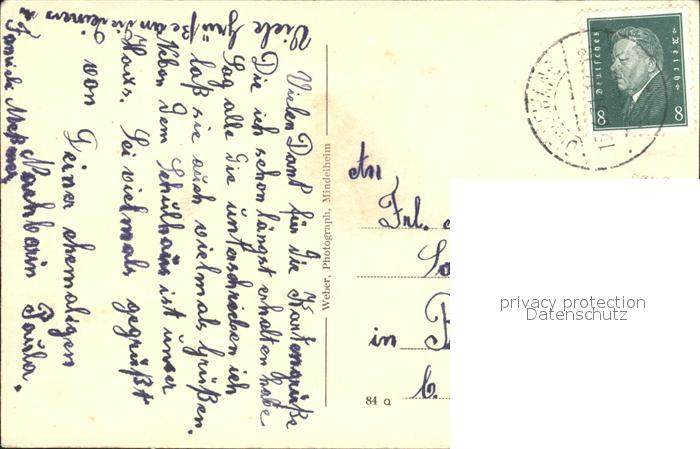 Vielen Dank für die Kartengrüße
Die ich schon längst erhalten habe
Sag alle die unterschrieben ich
laß sie auch vielmals Grüßen.
Neben dem Schulhaus ist unser
Haus. Sei vielmals gegrüßt
von Deiner ehemaligen
Nachbarin Paula.
Viele Grüße an die
Weber, Photograph, Mindelheim
84 a
Deutsches Reich
8 8
An
Frl.
in
b.
privacy protection
Datenschutz